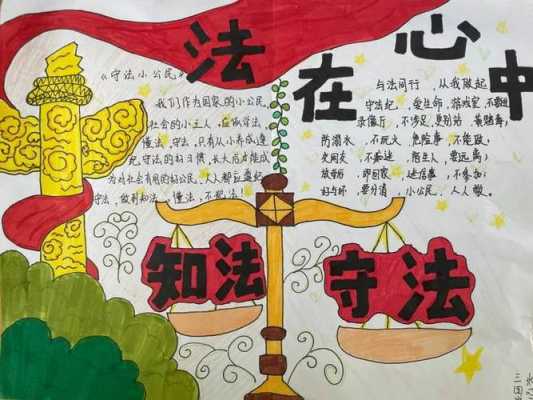 法在心中
《守法小公民》
我们作为国家的小公民,
社会的小主人,应做学法,
懂法、守法,只有从小养成遵
纪守法的好习惯,长大后才能成
为对社会有用的好公民,人人都应遵纪
守法,做到知法、懂法,不犯法!
与法同行,从我做起
守法纪,爱生命,游戏室,不要进
录像厅,不涉足,要别毒,黄赌毒;
防溺水,不玩火,危险事,不能做,
交网友,不痴迷,陌生人,要远离;
放学后,即回家,迷信事,不参加;
好与坏,要分清,小公民,人人赞。
知法
守法
三